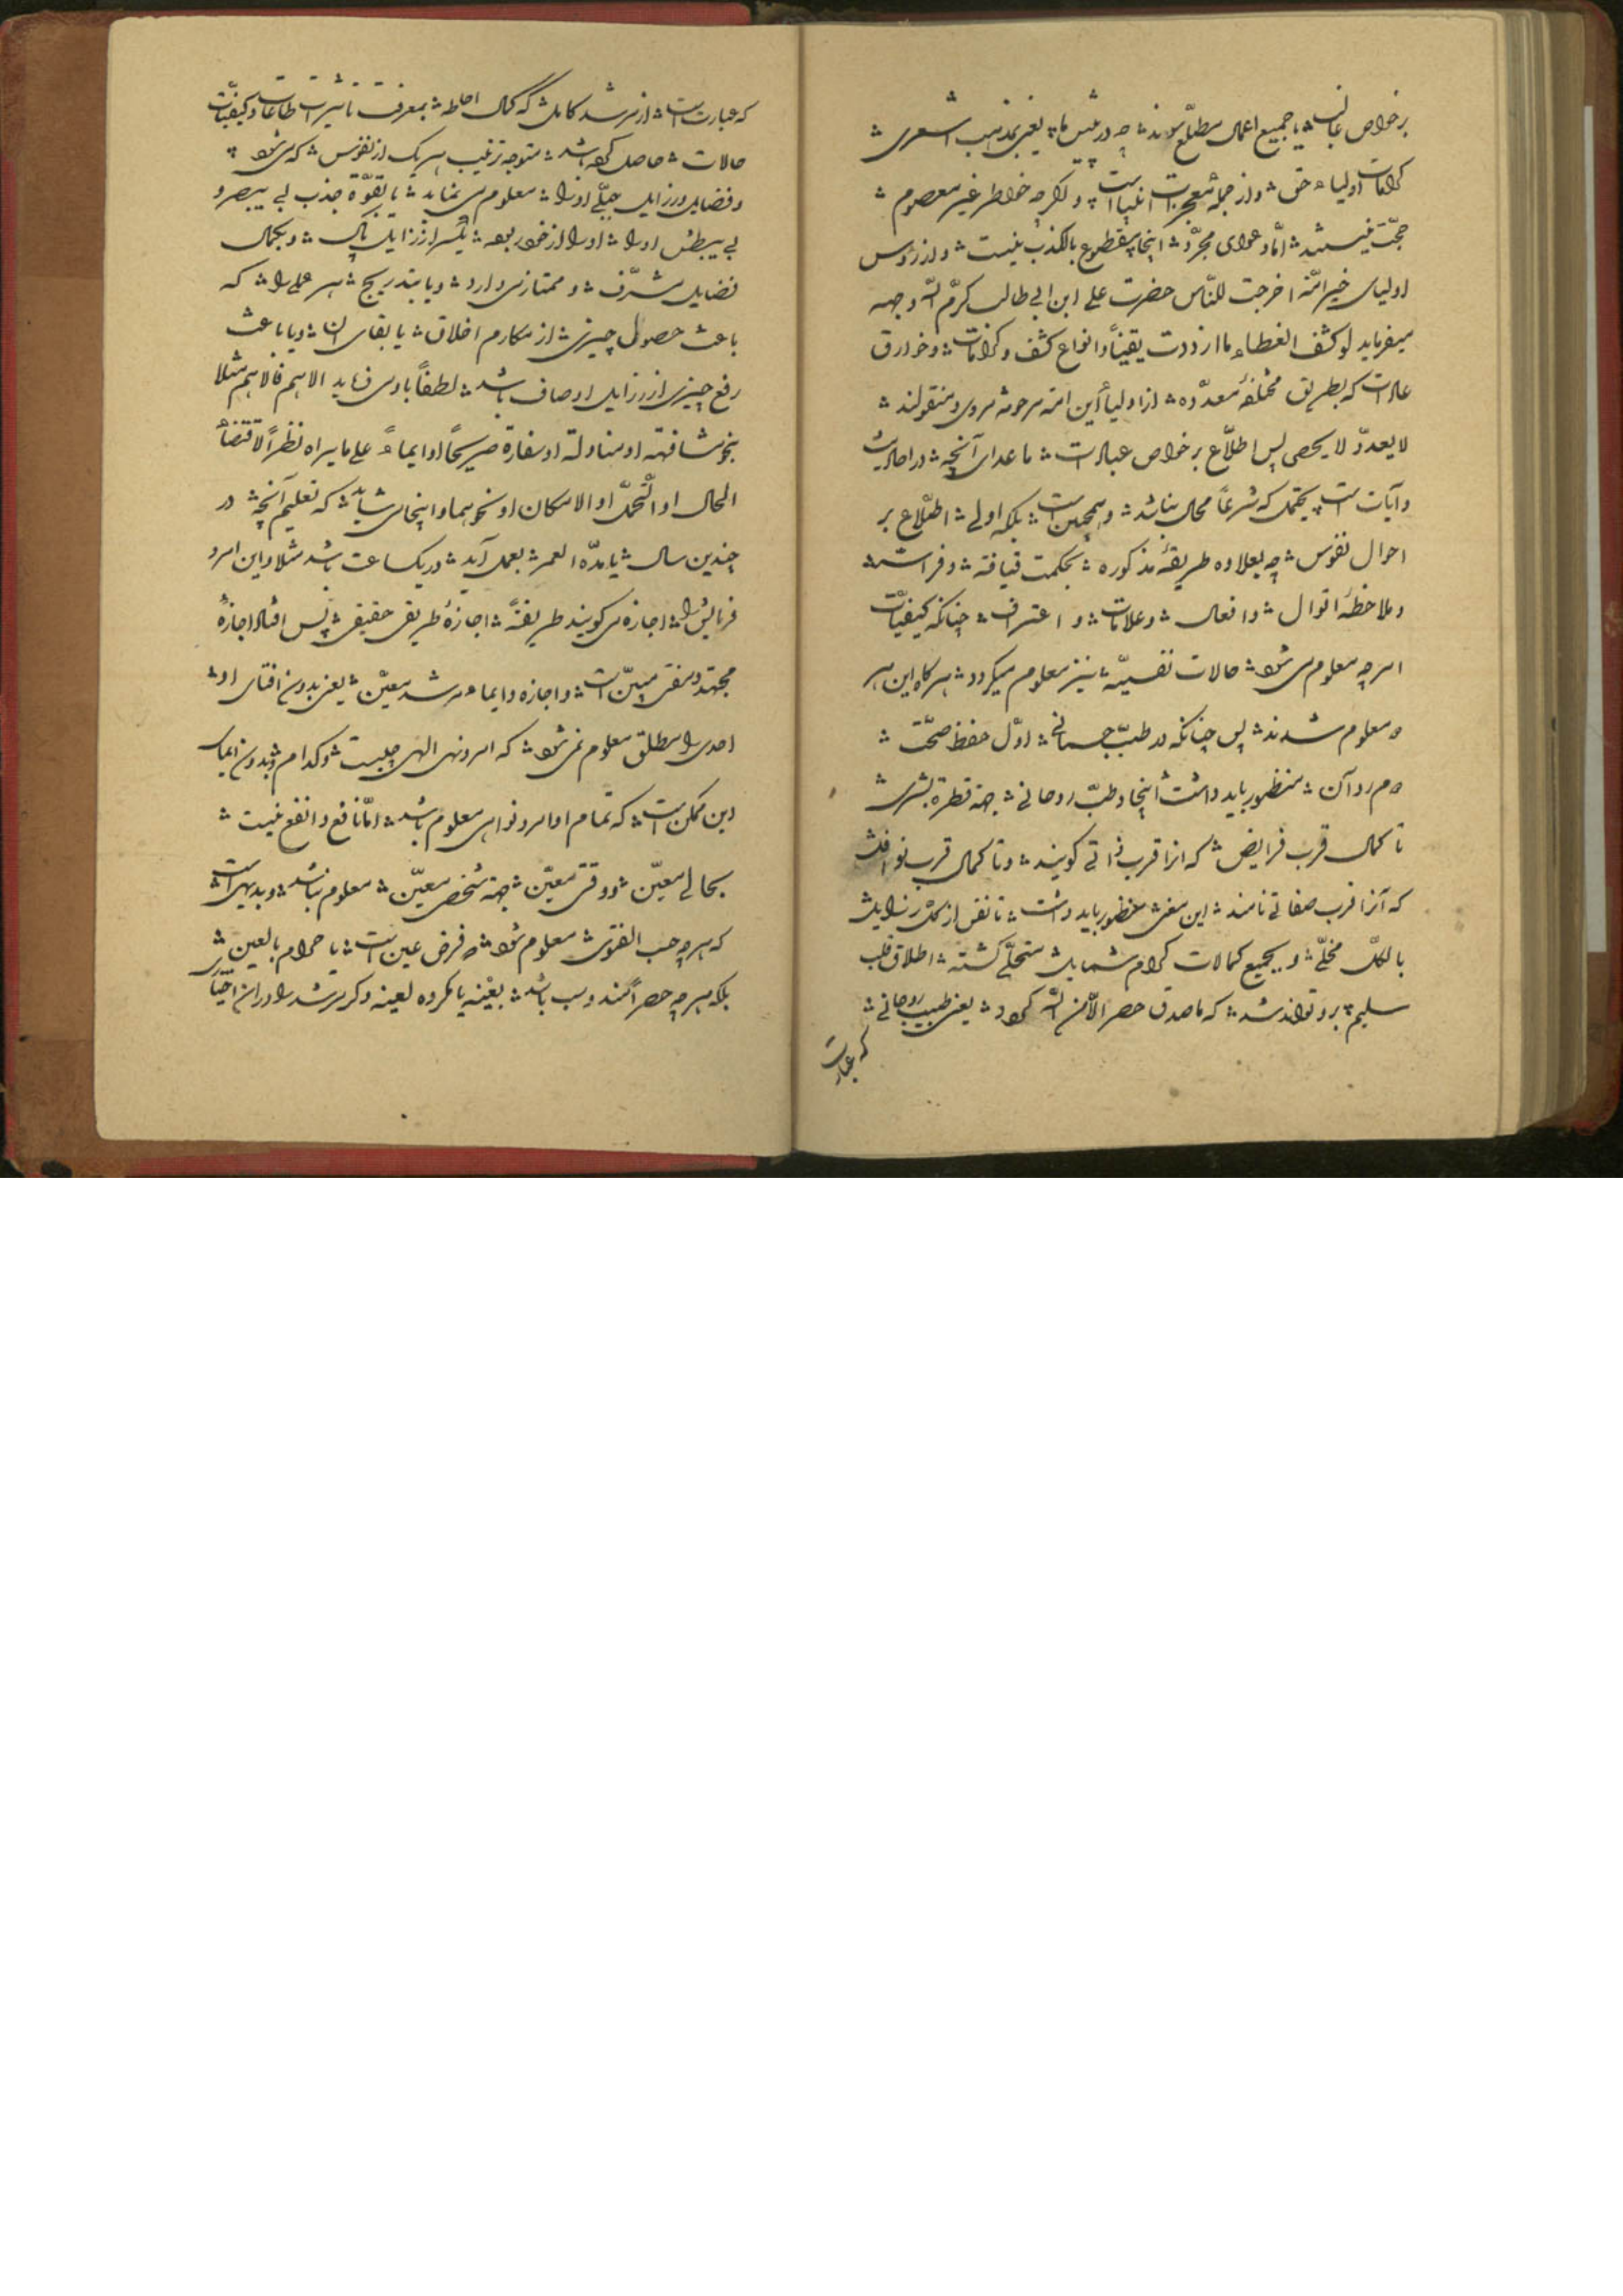 بر خواص عبادات یا جمیع اعمال مطلع شوند چه در پیش ما یعنی بمذهب اشعری
کرامات اولیاء حق و از جمله معجزات انبیا است و اگرچه خواطر غیر معصوم
حجت نیستند امّا دعوای مجرّد اینجا مقطوع بالکذب نیست و از رؤس
اولیای خیر امّة اخرجت للنّاس حضرت علی ابن ابی طالب کرّم اللّه وجهه
میفرماید لو کشف الغطاء ما ازددت یقیناً و انواع کشف و کرامات و خوارق
عادات که بطریق مختلفهٔ متعدّده از اولیاء این امّه مرحومه مروی و منقولند
لا یعدّ و لا یحصی پس اطلاع بر خواص عبادات ماعدای آنچه در احادیث
و آیات است یحتمل که شرعاً محال نباشد و همچنین است بلکه اولی اطلاع بر
احوال نفوس چه بعلاوه طریقهٔ مذکوره بحکمت قیافة و فراست
و ملاحظهٔ اقوال و افعال و علامات و اعتراف چنانکه کیفیّات
امزجه معلوم می شود حالات نفسیّه نیز معلوم میگردد هرگاه این هر
دو معلوم شدند پس چنانکه در طبّ جسمانی اوّل حفظ صحّت
دوم رد آن منظور باید داشت اینجا در طبّ روحانی جهة فطرة بشری
تا کمال قرب فرایض که انرا قرب ذاتی کویند و تا کمال قرب نوافل
که آنرا قرب صفاتی نامند این معنی منظور باید داشت تا نفس از کل رذایل
بالکلّ مخلّی و بجمیع کمالات کرام شمایل متحلّی کشته اطلاق قلب
سلیم برو تواند شد که ماصدق حصر الّا من اللّه کردد یعنی طبیب روحانی
که عبارت
که عبارت است از مرشد کامل که کمال احاطه بمعرفت تاثیرات طاعات و کیفیّات
حالات حاصل کرده باشد متوجه ترغیب هر یک از نفوس که می شود
و فضایل و رزایل جبلّی او را معلوم می نماید یا بقوّة جذب لی یبصر و
لی یبطش او را او را از خود ربوده یکسر از رزایل پاک و بکمال
فضایل مشرّف و ممتاز می دارد و یا بتدریج هر عملی را که
باعث حصول چیزی از مکارم اخلاق یا بقای ان و یا باعث
رفع چیزی از رزایل اوصاف باشد لطفاً باو می فرماید الاهم فالاهم مثلا
بنحو مشافهة او مناولة او سفارة صریحاً او ایماءً علی ما یراه نظراً لاقتضاء
الحال او التحمّل او الامکان او نحوهما و اینجا می شاید که تعلیم آنچه در
چندین سال یا مدّة العمر بعمل آید در یکساعت باشد مثلا و این امر و
فرمایش را اجازه می کویند طریقةً اجازهٔ طریق حقیقی پس افتا و اجازهٔ
مجتهد و مفتی مبیّن است و اجازه و ایماء مرشد معیّن یعنی بدون افتای او
احدی را مطلق معلوم نمی شود که امر و نهی الهی چیست و کدام و بدون ایمای
این ممکن است که تمام اوامر و نواهی معلوم باشد امّا نافع و انفع نیست
بحالی معیّن و وقتی معیّن جهة شخصی معیّن معلوم نباشد و بدیهی است
که هرچه حسب الفتوی معلوم شود نه فرض عین است یا حرام بالعین
بلکه هرچه حصراً مندوب باشد بعینه یا مکروه لعینه و کر مرشد را در ان اختیاری